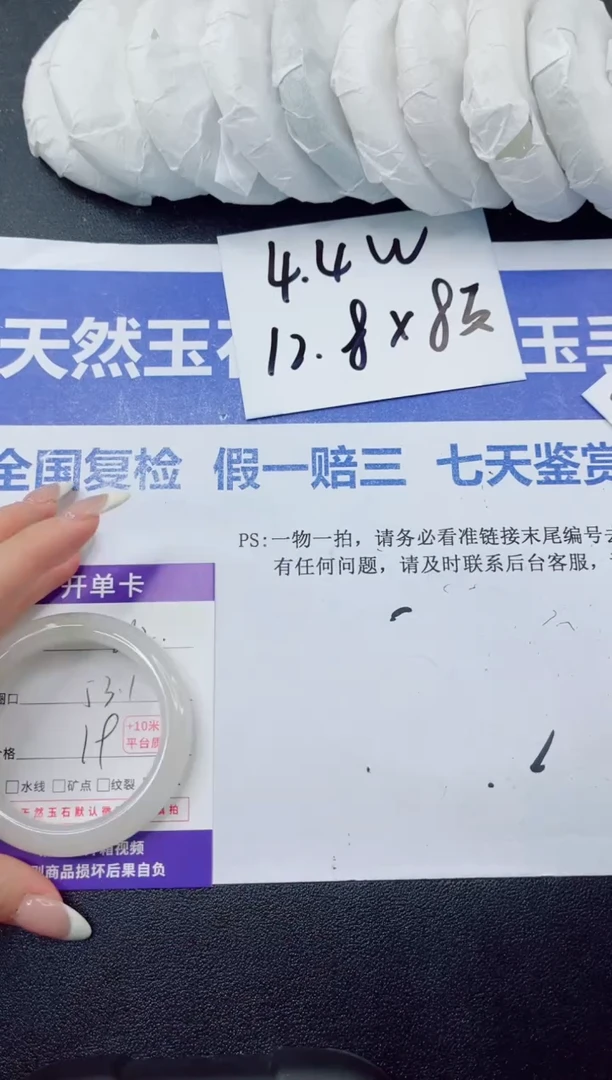 4.4W
12.8×8页
天然玉
玉手
全国复检 假一赔三 七天鉴赏
PS:一物一拍，请务必看准链接末尾编号去
有任何问题，请及时联系后台客服，
开单卡
圈口 53.1
格
+10米
平台质
□水线 □矿点 □纹裂
天然玉石默认微
慎拍
视频
则商品损坏后果自负